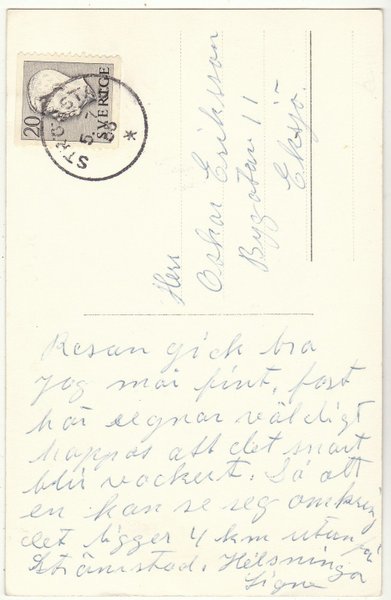 20
SVERIGE
5 -7
Herr
Oskar Eriksson
Bygatan 11
Eksjö.
Resan gick bra
Jag mår fint, fast
här regnar väldigt
hoppas att det snart
blir vackert. Så att
en kan se seg omkring
det ligger 4 km utanför
Strömstad. Hälsningar
Signe